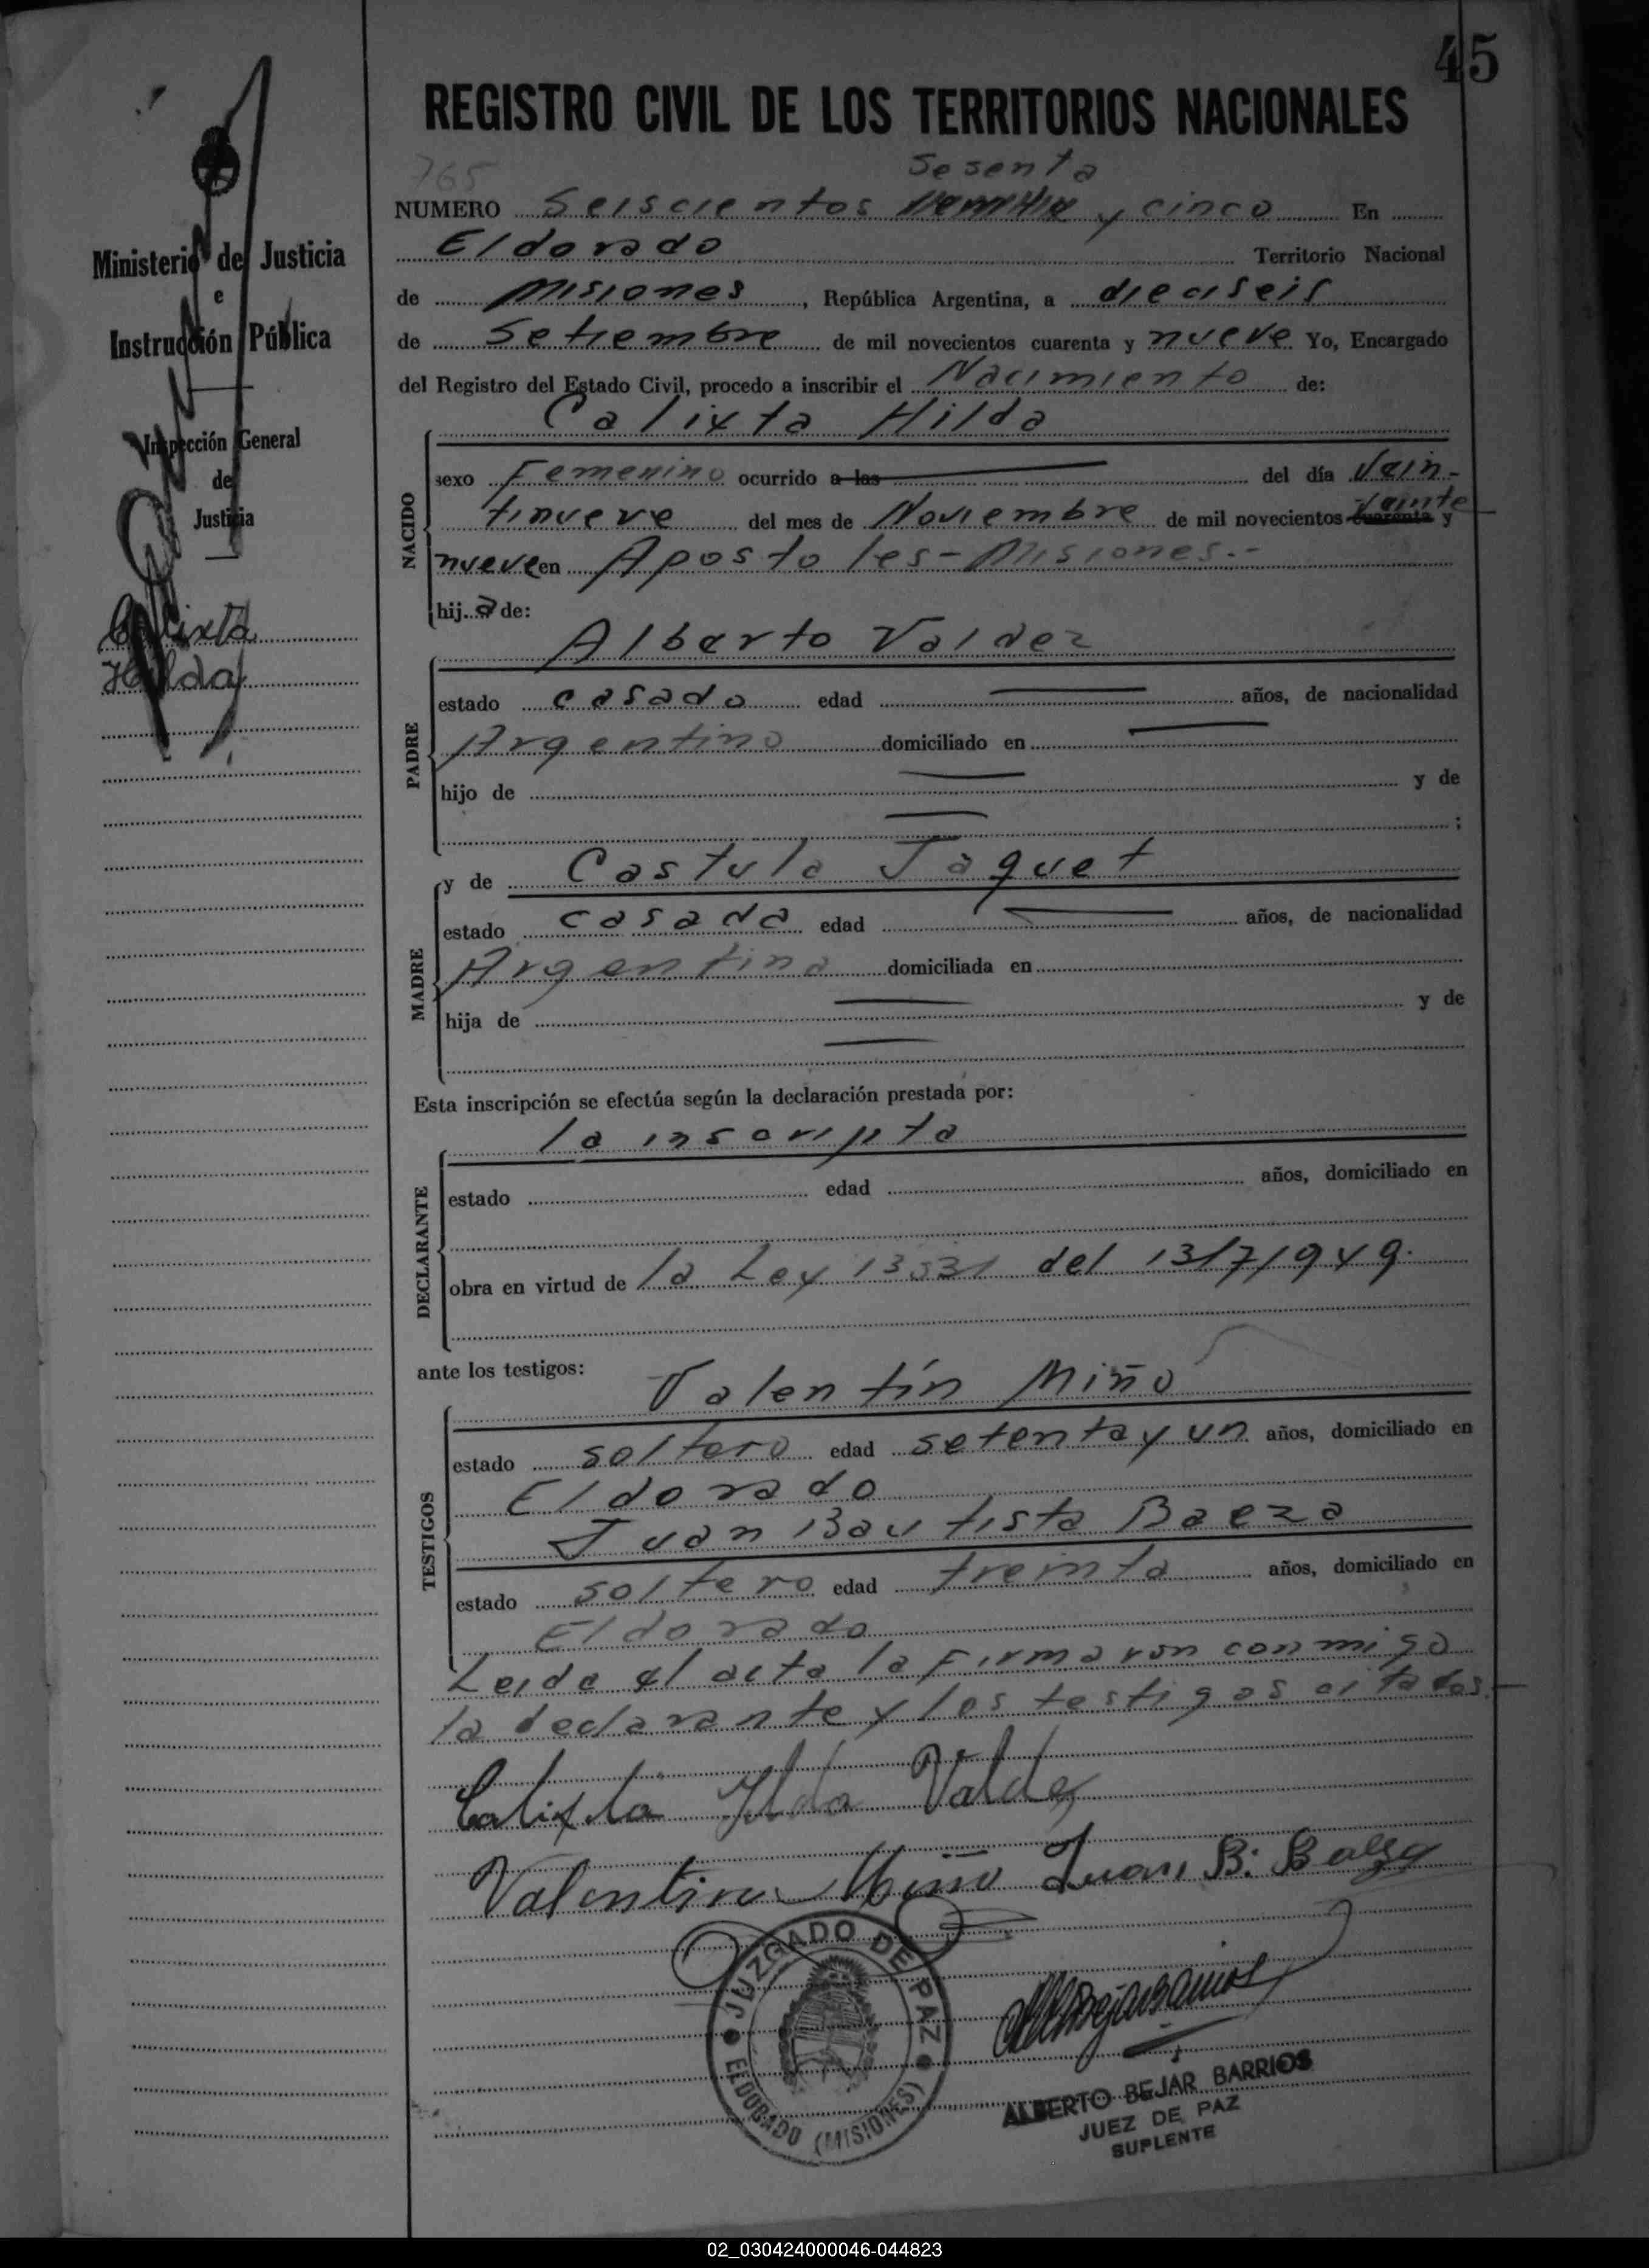 45
REGISTRO CIVIL DE LOS TERRITORIOS NACIONALES
765
Sesenta
NUMERO Seiscientos y cinco En
Eldorado Territorio Nacional
de Misiones, República Argentina, a dieciseis
de Setiembre de mil novecientos cuarenta y nueve Yo, Encargado
del Registro del Estado Civil, procedo a inscribir el Nacimiento de:
Calixta Hilda
sexo Femenino ocurrido a las del día Vein-
veinte
tinueve del mes de Noviembre de mil novecientos cuarenta y
nueve en Apostoles - Misiones.-
hij.a de:
NACIDO
Alberto Valdez
estado casado edad años, de nacionalidad
Argentino domiciliado en
hijo de y de
;
PADRE
y de Castula Jaquet
estado casada edad años, de nacionalidad
Argentina domiciliada en
hija de y de
MADRE
Esta inscripción se efectúa según la declaración prestada por:
la inscripta
estado edad años, domiciliado en
obra en virtud de la Ley 13531 del 13/7/949.
DECLARANTE
ante los testigos:
Valentín Miño
estado soltero edad setenta y un años, domiciliado en
Eldorado
Juan Bautista Baeza
estado soltero edad treinta años, domiciliado en
Eldorado
TESTIGOS
Leida el acta la firmaron conmigo
la declarante y los testigos citados.
Calixta Ilda Valdez
Valentin Miño Juan B. Baeza
JUZGADO DE PAZ
ELDORADO (MISIONES)
ALBERTO BEJAR BARRIOS
JUEZ DE PAZ
SUPLENTE
Ministerio de Justicia
e
Instrucción Pública
Inspección General
de
Justicia
Calixta
Hilda
02_030424000046-044823